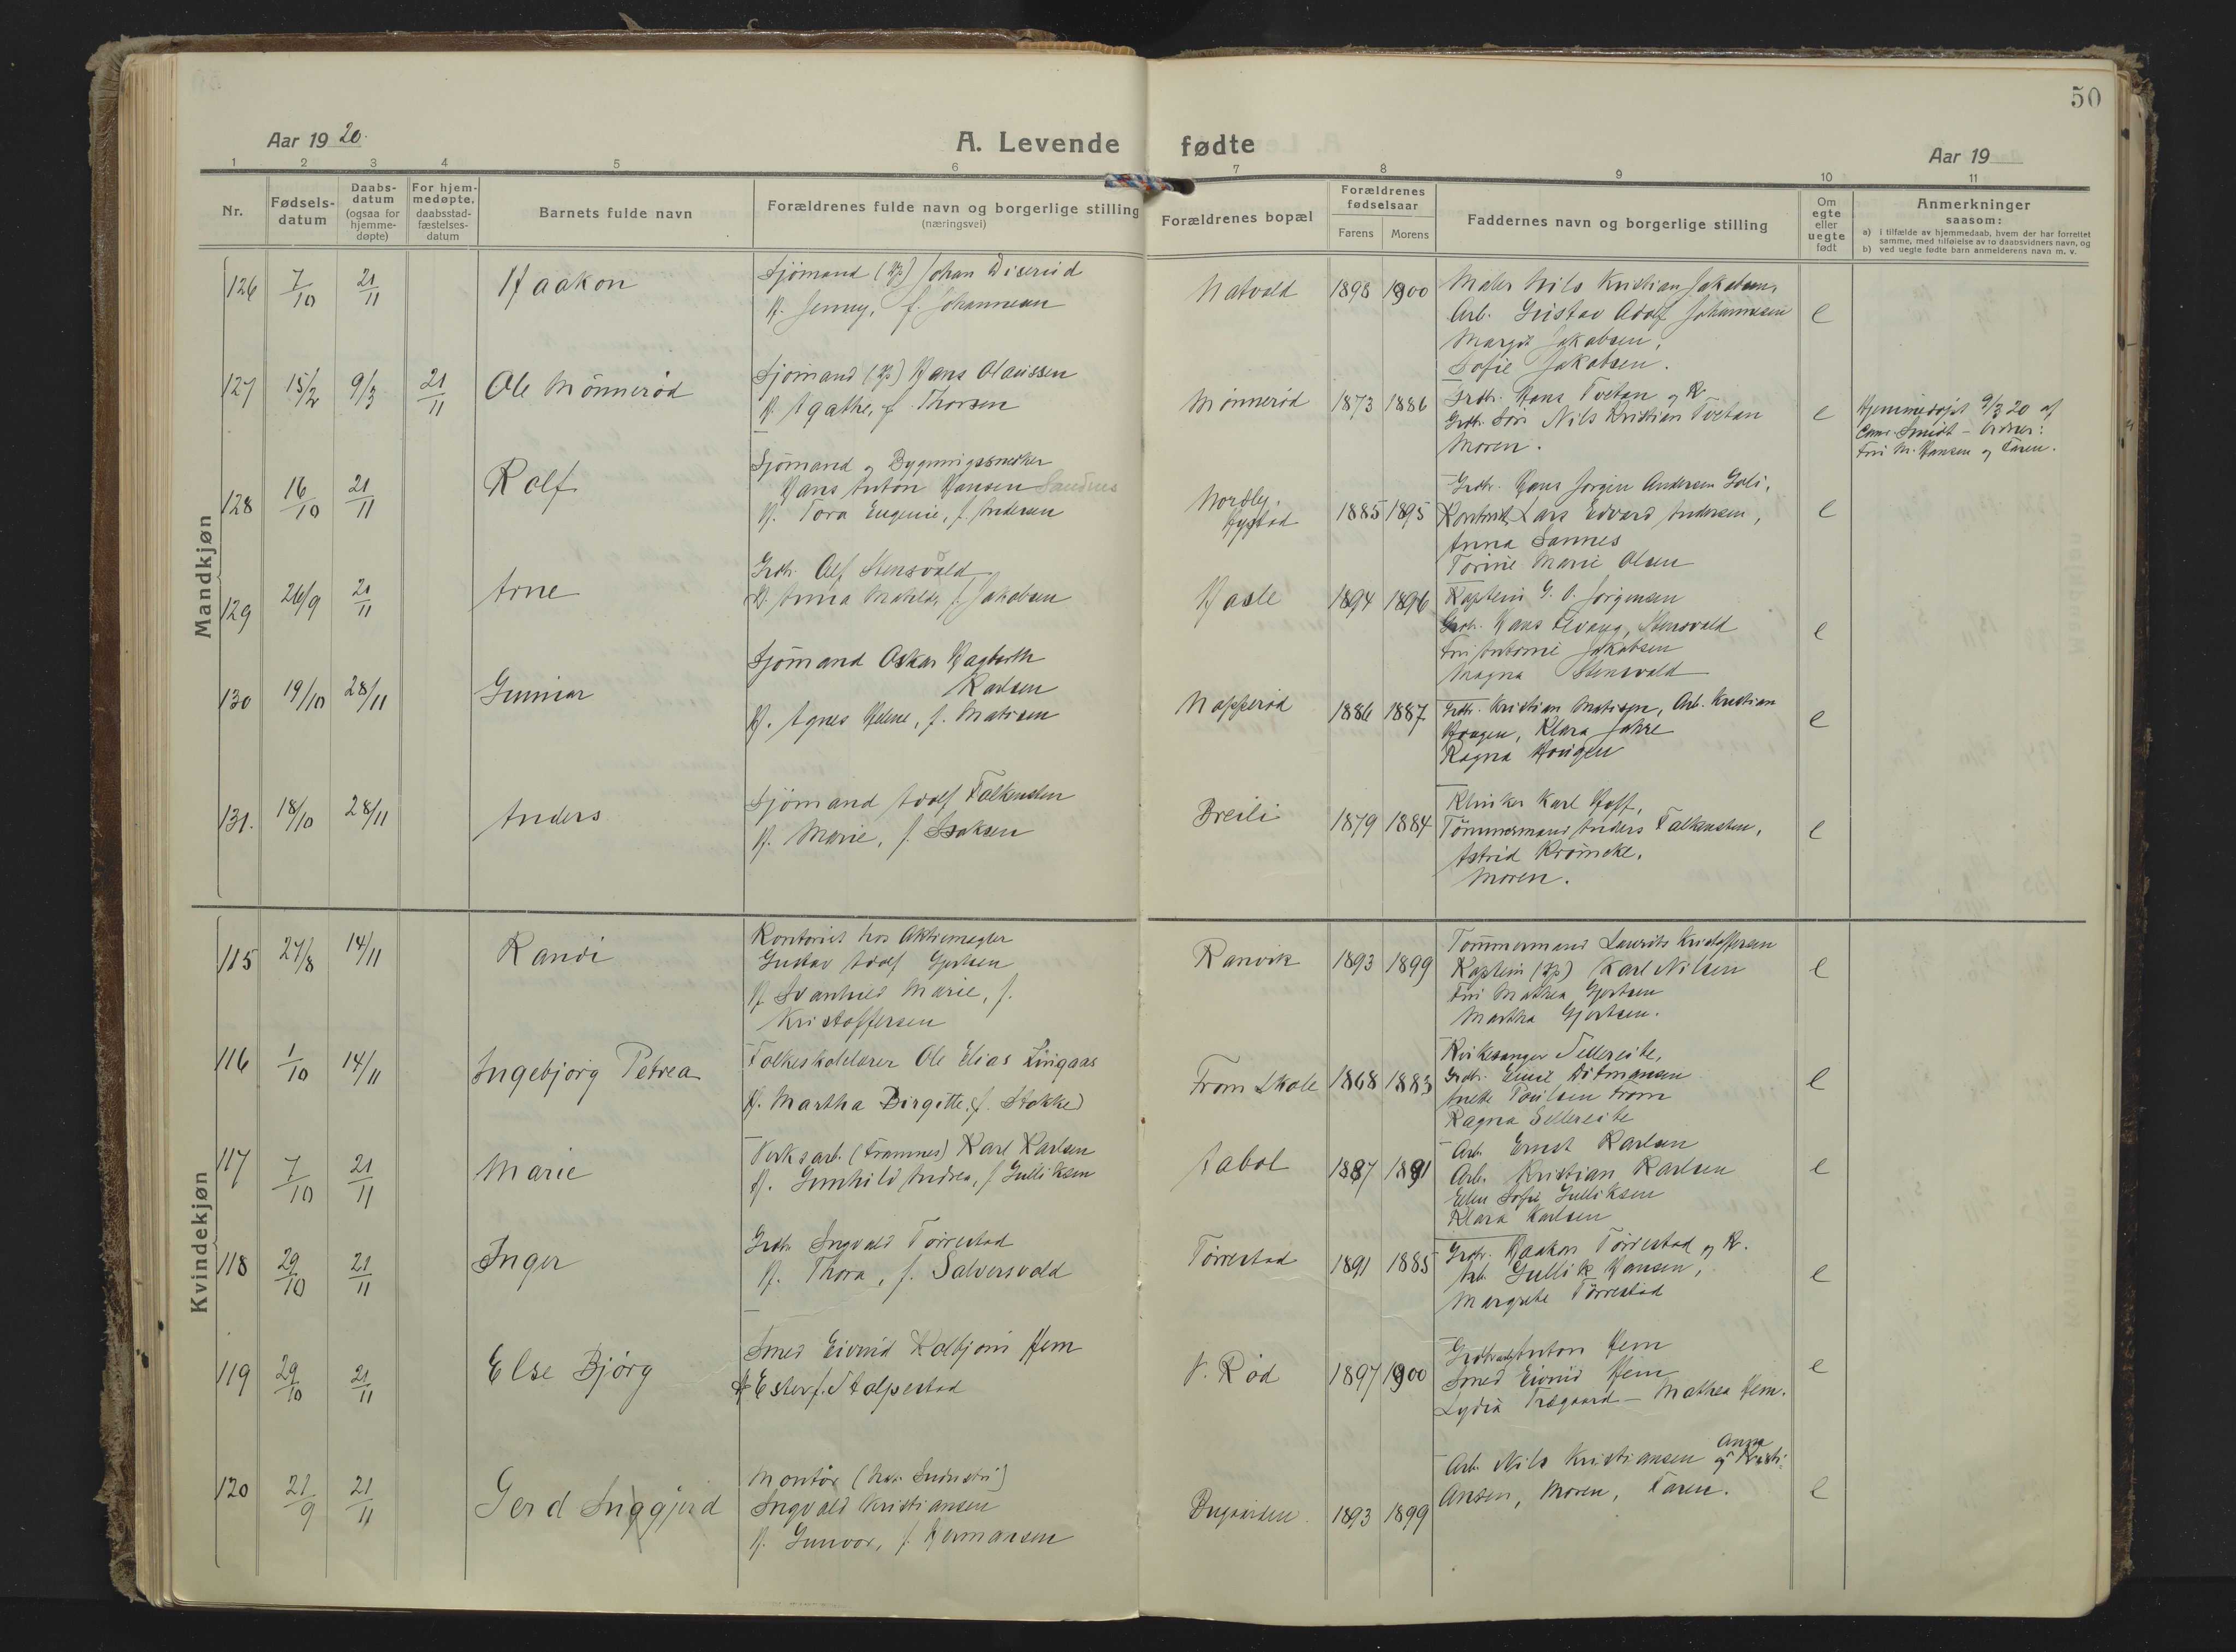 50
Aar 1920.
A. Levende fødte
Aar 19
1 2 3 4 5 6 7 8 9 10 11
Nr.
Fødsels-
datum
Daabs-
datum
(ogsaa for
hjemme-
døpte)
For hjem-
medøpte,
daabsstad-
fæstelses-
datum
Barnets fulde navn
Forældrenes fulde navn og borgerlige stilling
(næringsvei)
Forældrenes bopæl
Forældrenes
fødselsaar
Farens Morens
Faddernes navn og borgerlige stilling
Om
egte
eller
uegte
født
Anmerkninger
saasom:
a) i tilfælde av hjemmedaab, hvem der har forrettet
samme, med tilføielse av to daabsvidners navn, og
b) ved uegte fødte barn anmelderens navn m. v.
Mandkjøn
126 7/10 21/11 Haakon
Sjömand (Hp) Johan Diserud
H. Jenny, f. Johannesen
Natvold 1898 1900
Maler Nils Kristian Jakobsen,
Arb. Gustav Adolf Johannesen
Margit Jakobsen,
Sofie Jakobsen.
e
127 15/2 9/3 21/11 Ole Mönnerød
Sjömand (Hp) Hans Olaussen
H. Agathe, f. Thorsen
Mönnerød 1873 1886
Grdbr. Hans Tvetan og K
Grdbr. Søn Nils Kristian Tvetan
Moren.
e
Hjemmedøpt 9/3 20 af
Smidt - Vidner:
Fru M. Hansen og Faren.
128 16/10 21/11 Rolf
Sjömand og Bygningssnedker
Hans Anton Hansen Sandnes
H. Tora Eugenie, f. Andersen
Nordby,
Hystad 1885 1895
Grdbr. Hans Jörgen Andersen
Kontorist Lars Edvard Andersen,
Anna Sannes
Torine Marie Olsen
e
129 26/9 21/11 Arne
Grdbr. Alf Stensvold
H. Anna Mathilde, f. Jakobsen
Hasle 1894 1896
Kaptein G. O. Jörgensen
Grdbr. Hans Elvang, Stensvold
Fru Antonie Jakobsen
Magna Stensvold
e
130 19/10 28/11 Gunnar
Sjömand Oskar Hagbarth
Karlsen
H. Agnes Helene, f. Matisen
Nopperød 1886 1887
Grdbr. Kristian Matisen, Arb. Kristian
Haugen, Klara Jahre
Ragna Haugen
e
131. 18/10 28/11 Anders
Sjömand Adolf Falkensten
H. Marie, f. Isaksen
Breili 1879 1884
Klinker Karl Hoff,
Tömmermand Anders Falkensten,
Astrid Krömcke,
Moren.
e
Kvindekjøn
115 27/8 14/11 Randi
Kontorist hos Aktiemægler
Gustav Adolf Gjertsen
H Svanhild Marie, f.
Kristoffersen
Ranvik 1893 1899
Tommermand Laurits Kristoffersen
Kaptein (Hp) Karl Nilsen
Fru Mathea Gjertsen
Martha Gjertsen.
e
116 1/10 14/11 Ingebjörg Petrea
Folkeskolelærer Ole Elias Lingaas
H. Martha Birgitte, f. Stokke
From Skole 1868 1883
Kirkesanger Sellereite,
Grdbr. Ditmansen
Anette Poulsen From
Ragna Sellereite
e
117 7/10 21/11 Marie
Verksarb. (Framnes) Karl Karlsen
H. Gunhild Andrea, f. Gulliksen
Aabol 1887 1891
Arb. Ernst Karlsen
Arb. Kristian Karlsen
Ellen Sofie Gulliksen
Klara Karlsen
e
118 29/10 21/11 Inger
Grdbr Ingvald Törrestad
H. Thora, f. Salversvold
Törrestad 1891 1885
Grdbr. Haakon Törrestad og K.
Arb. Gullik Hansen,
Margrete Törrestad
e
119 29/10 21/11 Else Bjørg
Smed Eivind Kolbjörn Hem
H. Ester f. Stalpestad
V. Rød 1897 1900
Anton Hem
Smed Eivind Hem
Lydia Trægaard - Mathea Hem.
e
120 21/9 21/11 Gerd Inggjerd
Montör (Industri)
Ingvald Kristiansen
H. Gunvor, f. Hermansen
Bugaarden. 1893 1899
Arb. Nils Kristiansen og Anna Kristi-
ansen, Moren, Faren.
e